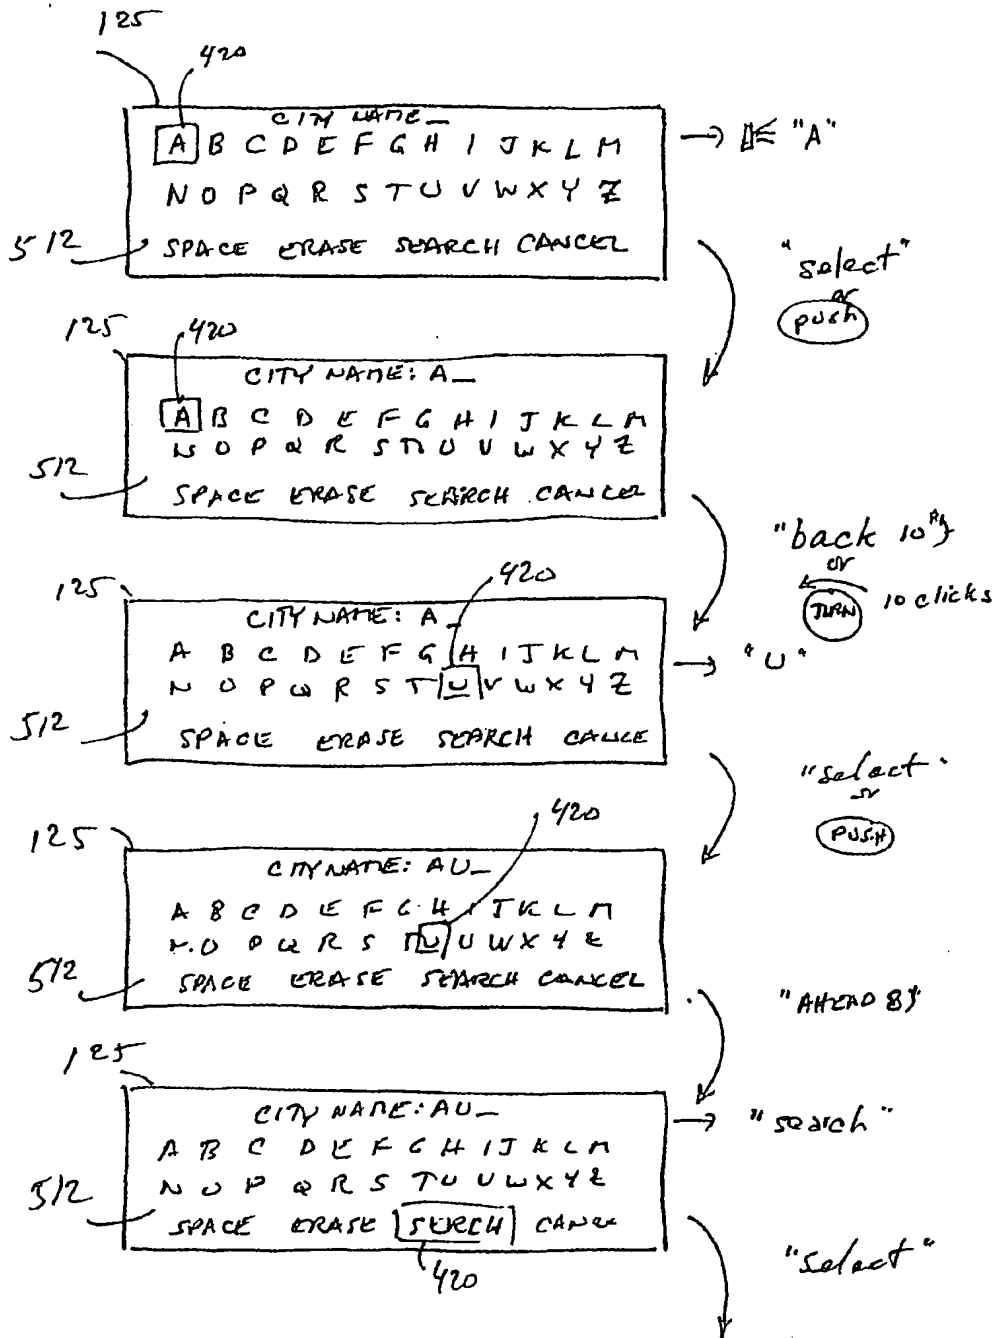 125
420
CITY NAME_
A B C D E F G H I J K L M
→ "A"
N O P Q R S T U V W X Y Z
512
SPACE ERASE SEARCH CANCEL
"select"
or
PUSH
125
420
CITY NAME: A_
A B C D E F G H I J K L M
N O P Q R S T U V W X Y Z
512
SPACE ERASE SEARCH CANCEL
"back 10"
or
TURN 10 clicks
125
420
CITY NAME: A_
A B C D E F G H I J K L M
→ "U"
N O P Q R S T U V W X Y Z
512
SPACE ERASE SEARCH CANCE
"select"
or
PUSH
125
420
CITY NAME: AU_
A B C D E F G H I J K L M
N O P Q R S T U U W X Y Z
512
SPACE ERASE SEARCH CANCEL
"AHEAD 8"
125
CITY NAME: AU_
→ "search"
A B C D E F G H I J K L M
N O P Q R S T U U W X Y Z
512
SPACE ERASE SERCH CANCL
420
"select"